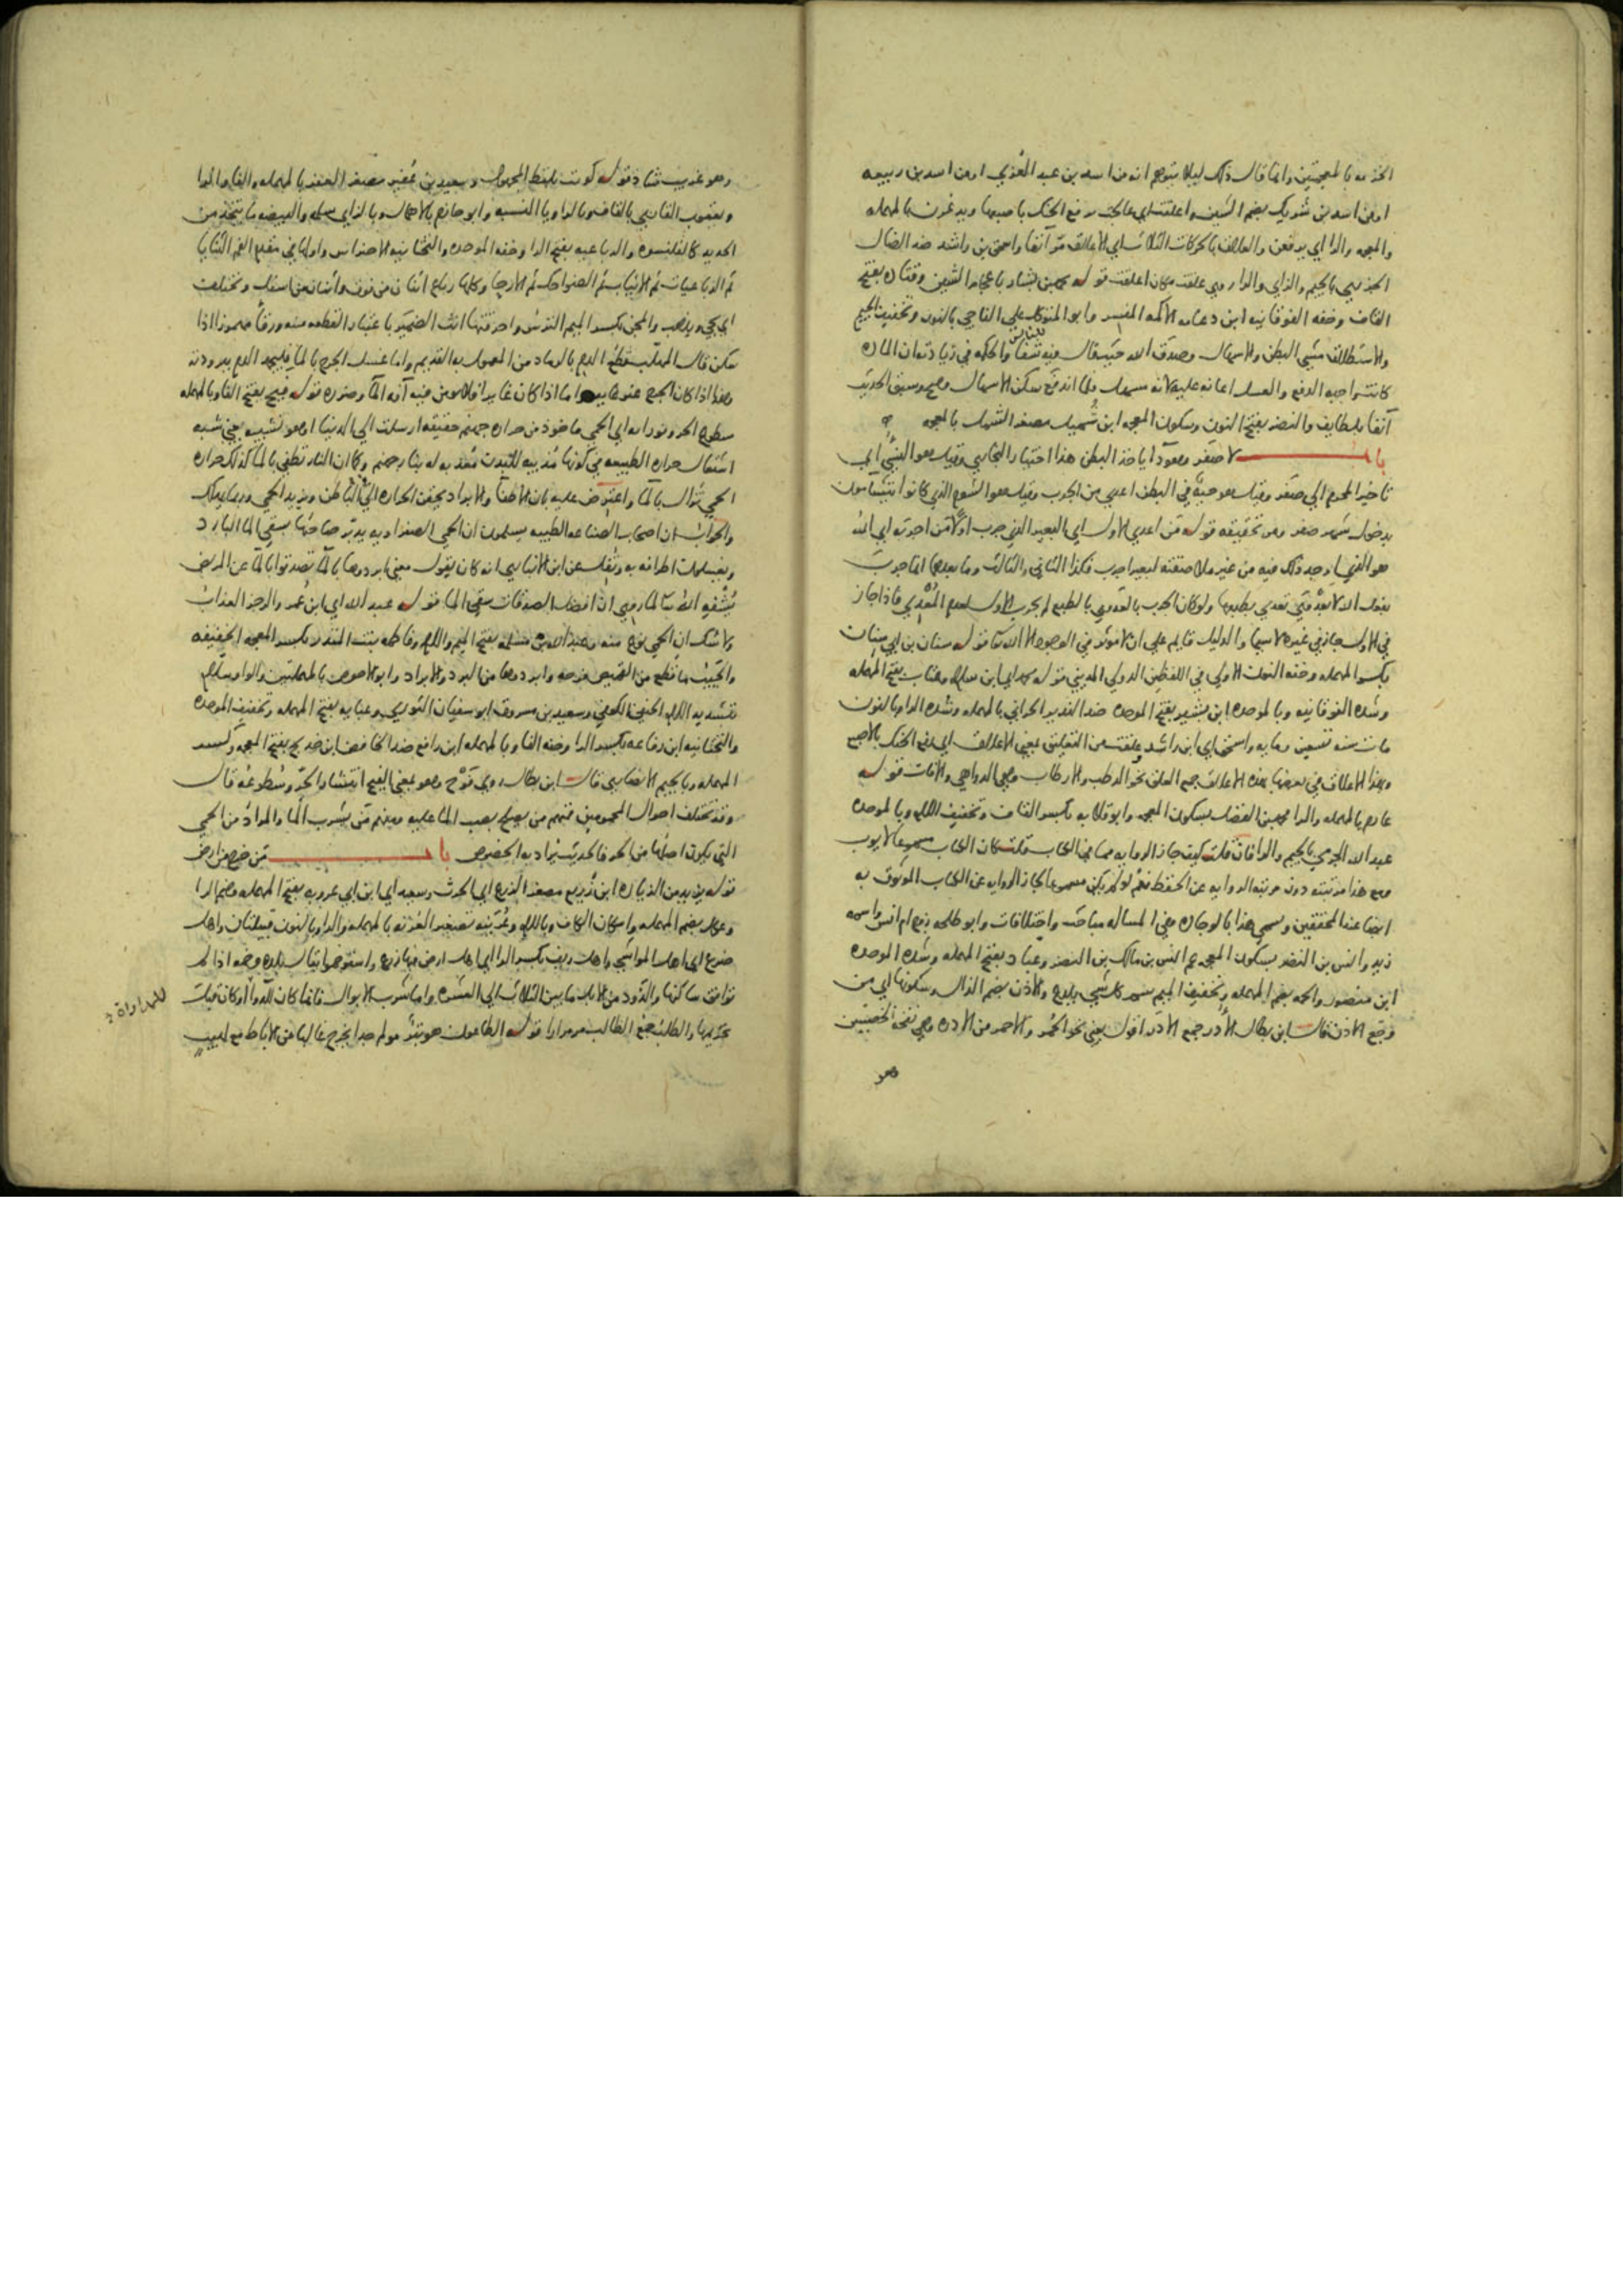 الخزيمه بالمعجمتين وانما قال ذلك ليلا يتوهم انه من اسد بن عبد العزي او من اسد بن ربيعه
او من اسد بن شريك بضم الشين واعلقت اي عالجت برفع الحنك باصبعها ويدغرن بالمهمله
والمعجمه والرا اي يدفعن والعلاق بالحركات الثلاث اي الاعلاق مر آنفا واسحق بن راشد ضد الضال
الجزري بالجيم والزاي والرا روي علقت مكان اعلقت قوله محمد بن بشار باعجام الشين وقتاده بفتح
القاف وخفه الفوقانيه ابن دعامه الاكمه المفسر وابو المتوكل علي الناجي بالنون وتخفيف الجيم
والاستطلاق مشي البطن والاسهال وصدق الله حيث قال فيه شفا للناس والحكمه في زيادته ان الماده
كانت واجبه الدفع والعسل اعانه عليه لانه مسهل فلما اندفع سكن الاسهال وصح وسبق الحديث
آنفا بلطايف والنضر بفتح النون وسكون المعجمه ابن شميل مصغر الشمل بالمعجمه
باب لا صفر وهو دا ياخذ البطن هذا اختيار البخاري وقيل هو النسي اي
تاخير المحرم الي صفر وقيل هو حيه في البطن اعدي من الجرب وقيل هو الشوم الذي كانوا يتشامون
بدخول شهر صفر ومر تحقيقه قوله فمن اعدي الاول اي البعير الذي جرب اولا من اجربه اي الله
هو الذي اوجد ذلك فيه من غير ملاصقته لبعير اجرب فكذا الثاني والثالث وما بعدها انما جرب
بفعل الله لا بعدوي تعدي بطبعها ولو كان الجرب بالعدوي بالطبع لم يجرب الاول لعدم المعدي فاذا جاز
في الاول جاز في غيره لا سيما والدليل قايم علي ان لا موثر في الوجود الا الله تعا قوله سنان بن ابي سنان
بكسر المهمله وخفه النون الاولي في اللفظين الدولي المديني قوله محمد اي ابن سلام وعتاب بفتح المهمله
وشده الفوقانيه وبالموحده ابن بشير بفتح الموحده ضد النذير الحراني بالمهمله وشده الرا وبالنون
مات سنه تسعين ومايه واسحق اي ابن راشد وعلقت من التعليق بمعني الاعلاق اي رفع الحنك بالاصبع
وهذا الاعلاق في بعضها بهذه الاعلاق جمع العلق نحو الرطب والارطاب وهي الدواهي والافات قوله
عارم بالمهمله والرا محمد بن الفضل بسكون المعجمه وابو قلابه بكسر القاف وتخفيف اللام وبالموحده
عبد الله الجرمي بالجيم والرا فان قلت كيف جاز الروايه مما في الكتاب قلت كان الكتاب مسموعا لايوب
ومع هذا مرتبته دون مرتبه الروايه عن الحفظ نعم لو لم يكن مسموعا لجاز الروايه عن الكتاب الموثوق به
ايضا عند المحققين وسمي هذا بالوجاده وفي المساله مباحث واختلافات وابو طلحه زوج ام انس واسمه
زيد وانس بن النضر بسكون المعجمه عم انس بن مالك بن النضر وعباد بفتح المهمله وشده الموحده
ابن منصور والحمه بضم المهمله وتخفيف الميم سم كل شي يلدغ والاذن بضم الذال وسكونها اي من
وجع الاذن قال ابن بطال الادر جمع الادر اقول يعني نحو الحمر والاحمر من الادره وهي نفخ الخصيتين
وهو
وهو غريب شاذ قوله كويت بلفظ المجهول وسعيد بن عفير مصغر العفر بالمهمله والفا والرا
ويعقوب القاري بالقاف وبالرا ويا النسبه وابو حازم بالاهمال وبالزاي سلمه والبيضه ما يتخذ من
الحديد كالقلنسوه والرباعيه بفتح الرا وخفه الموحده والتحتانيه الاضراس واولها في مقدم الفم الثنايا
ثم الرباعيات ثم الانياب ثم الضواحك ثم الارحا وكلها رباع اثنان من فوق واثنان من اسفل ويختلف
اي يجي ويذهب والمجن بكسر الميم الترس واحرقتها انث الضمير باعتبار القطعه منه ورقا مهموزا اذا
سكن قال المهلب قطع الدم بالرماد من المعمول به القديم وانما غسل الجرح بالما فليجمد الدم ببرودته
وهذا اذا كان الجرح غير غاير واما اذا كان غايرا فلا يومن فيه آفه الما وضرره قوله فيح بفتح الفا وبالمهمله
سطوع الحر وفورانه اي الحمي ماخوذ من حراره جهنم حقيقه ارسلت الي الدنيا او هو تشبيه يعني شبه
اشتعال حراره الطبيعه في كونها مذيبه للبدن معذبه له بنار جهنم وكما ان النار تطفي بالما كذلك حراره
الحمي تزال بالما واعترض عليه بان الاطفا والابراد يحقن الحراره الي الباطن ويزيد الحمي وربما يهلك
والجواب ان اصحاب الصناعه الطبيه يسلمون ان الحمي الصفراويه يدبر صاحبها بسقي الما البارد
ويغسلون اطرافه به ونقل عن ابن الانباري انه كان يقول معني ابردوها بالما تصدقوا بالما عن المريض
يشفيه الله تعا لما روي ان افضل الصدقات سقي الما قوله عبد الله اي ابن عمر والرجز العذاب
ولا شك ان الحمي نوع منه وعبد الله بن مسلمه بفتح الميم واللام وفاطمه بنت المنذر بكسر المعجمه الخفيفه
والجيب ما قطع من القميص وابردوها من البرد والابراد وابو الاحوص بالمهملتين والواو سلام
بتشديد اللام الحنفي الكوفي وسعيد بن مسروق ابو سفيان الثوري وعبايه بفتح المهمله وتخفيف الموحده
والتحتانيه ابن رفاعه بكسر الرا وخفه الفا وبالمهمله ابن رافع ضد الخافض ابن خديج بفتح المعجمه وكسر
المهمله وبالجيم الانصاري قال ابن بطال روي فوح وهو بمعني الفيح انتشار الحر وسطوعه قال
وقد تختلف احوال المحمومين فمنهم من يصلح بصب الما عليه ومنهم من بشرب الما والمراد من الحمي
التي يكون اصلها من الحر فالحديث يراد به الخصوص باب من خرج من ارض
قوله يزيد من الزياده ابن زريع مصغر الزرع اي الحرث وسعيد اي ابن ابي عروبه بفتح المهمله وضم الرا
وعكل بضم المهمله واسكان الكاف وباللام وعرينه تصغير العرنه بالمهمله والرا وبالنون قبيلتان واهل
ضرع اي اهل المواشي واهل ريف بكسر الرا اي اهل ارض فيها زرع واستوخموا يقال بلده وخمه اذا لم
توافق ساكنها والذود من الابل ما بين الثلاث الي العشره واما شرب الابوال فانما كان للدوا او كان قبل
للمداواة
تحريمها والطلب جمع الطالب مر مرارا قوله الطاعون هو بثر مولم جدا يخرج غالبا من الاباط مع لهيب